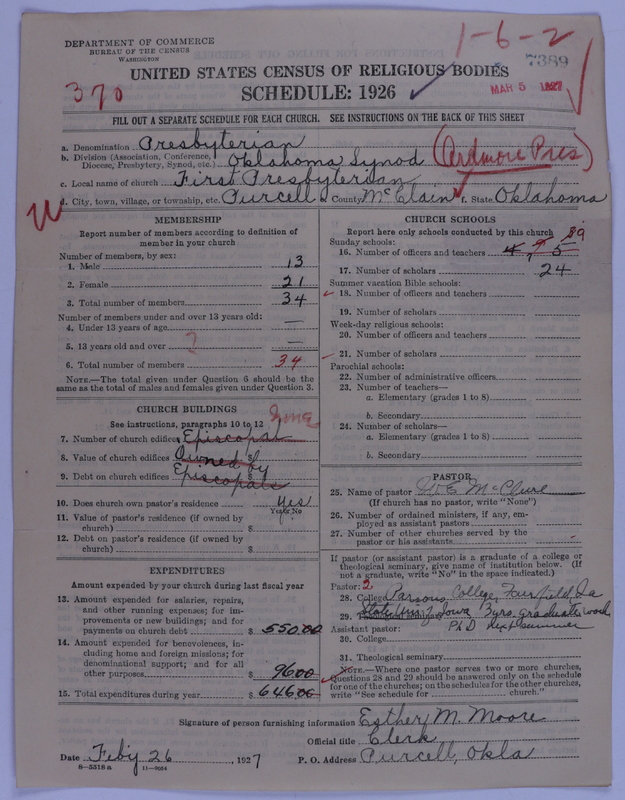 DEPARTMENT OF COMMERCE
BUREAU OF THE CENSUS
WASHINGTON
1-6-2
7389
MAR 5 1927
370
UNITED STATES CENSUS OF RELIGIOUS BODIES
SCHEDULE: 1926
FILL OUT A SEPARATE SCHEDULE FOR EACH CHURCH. SEE INSTRUCTIONS ON THE BACK OF THIS SHEET
a. Denomination Presbyterian
b. Division (Association, Conference, Diocese, Presbytery, Synod, etc.) Oklahoma Synod (Ardmore Pres)
c. Local name of church First Presbyterian
d. City, town, village, or township, etc. Purcell e. County McClain f. State Oklahoma
MEMBERSHIP
Report number of members according to definition of
member in your church
Number of members, by sex:
1. Male 13
2. Female 21
3. Total number of members 34
Number of members under and over 13 years old:
4. Under 13 years of age —
5. 13 years old and over ? —
6. Total number of members 34
NOTE.—The total given under Question 6 should be the
same as the total of males and females given under Question 3.
CHURCH BUILDINGS
See instructions, paragraphs 10 to 12
7. Number of church edifices Episcopal
8. Value of church edifices $ Owned by
9. Debt on church edifices $ Episcopals
10. Does church own pastor's residence yes
Yes or No
11. Value of pastor's residence (if owned by
church) $
12. Debt on pastor's residence (if owned by
church) $
EXPENDITURES
Amount expended by your church during last fiscal year
13. Amount expended for salaries, repairs,
and other running expenses; for im-
provements or new buildings; and for
payments on church debt $ 550.00
14. Amount expended for benevolences, in-
cluding home and foreign missions; for
denominational support; and for all
other purposes $ 96.00
15. Total expenditures during year $ 646.00
CHURCH SCHOOLS
Report here only schools conducted by this church
Sunday schools:
16. Number of officers and teachers 5
17. Number of scholars 24
Summer vacation Bible schools:
18. Number of officers and teachers
19. Number of scholars
Week-day religious schools:
20. Number of officers and teachers
21. Number of scholars
Parochial schools:
22. Number of administrative officers
23. Number of teachers—
a. Elementary (grades 1 to 8)
b. Secondary
24. Number of scholars—
a. Elementary (grades 1 to 8)
b. Secondary
PASTOR
25. Name of pastor McClure
(If church has no pastor, write "None")
26. Number of ordained ministers, if any, em-
ployed as assistant pastors
27. Number of other churches served by the
pastor or his assistants
If pastor (or assistant pastor) is a graduate of a college or
theological seminary, give name of institution below. (If
not a graduate, write "No" in the space indicated.)
Pastor:
28. College Parsons College, Fairfield, Ia
29. State Uni of Iowa 3 yrs. graduate work
Assistant pastor: PhD next summer
30. College
31. Theological seminary
NOTE.—Where one pastor serves two or more churches,
Questions 28 and 29 should be answered only on the schedule
for one of the churches; on the schedules for the other churches,
write "See schedule for church."
Signature of person furnishing information Esther M. Moore
Official title Clerk
Date Feby 26, 1927 P. O. Address Purcell, Okla
8-5518a 11-9054